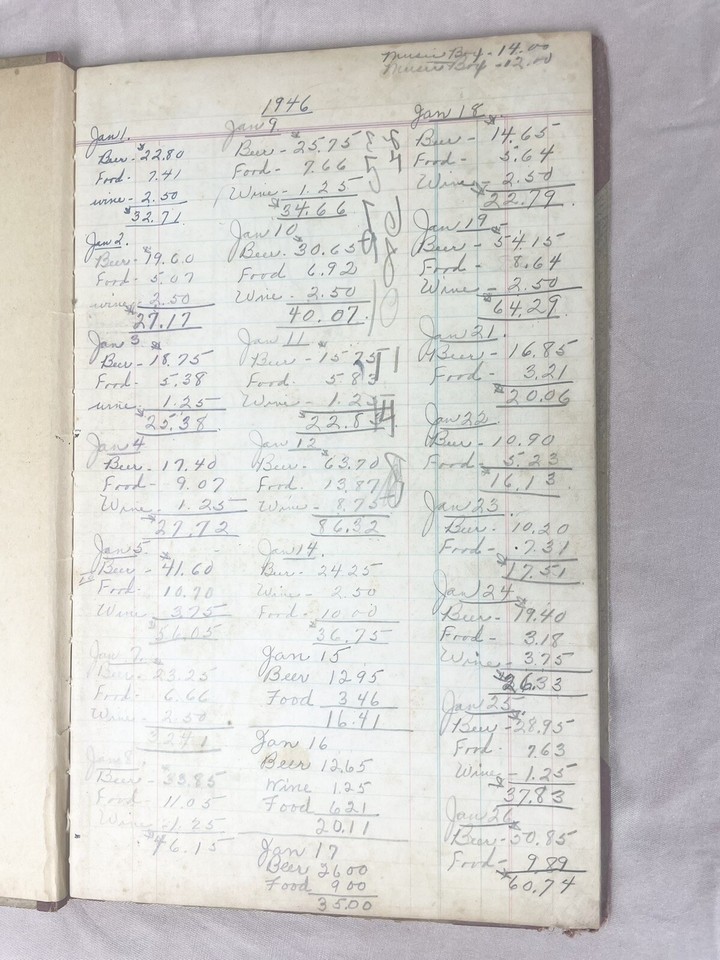 Music Box - 14.00
Music Box - 12.00
1946
Jan 1.
Beer - $22.80
Food - 7.41
wine - 2.50
$32.71
Jan 2.
Beer - $19.60
Food - 5.07
wine - 2.50
$27.17
Jan 3
Beer - 18.75
Food - 5.38
wine - 1.25
$25.38
Jan 4
Beer - 17.40
Food - 9.07
Wine - 1.25
$27.72
Jan 5
Beer - 41.60
Food - 10.70
Wine - 3.75
$56.05
Jan 7
Beer - 23.25
Food - 6.66
Wine - 2.50
32.41
Jan 8
Beer - 33.85
Food - 11.05
Wine - 1.25
$46.15
Jan 9
Beer - $25.75
Food - 7.66
Wine - 1.25
$34.66
Jan 10
Beer - $30.65
Food 6.92
Wine - 2.50
40.07
Jan 11
Beer - 15.75
Food - 5.83
Wine - 1.25
$22.83
Jan 12
Beer - $63.70
Food - 13.87
Wine - 8.75
$86.32
Jan 14
Beer - 24.25
Wine - 2.50
Food - 10.00
$36.75
Jan 15
Beer 12.95
Food 3.46
16.41
Jan 16
Beer 12.65
Wine 1.25
Food 6.21
20.11
Jan 17
Beer 26.00
Food 9.00
35.00
Jan 18
Beer - $14.65
Food - 5.64
Wine - 2.50
$22.79
Jan 19
Beer - $54.15
Food - 8.64
Wine - 2.50
$64.29
Jan 21
Beer - 16.85
Food - 3.21
$20.06
Jan 22
Beer - 10.90
Food - 5.23
$16.13
Jan 23
Beer - 10.20
Food - 7.31
$17.51
Jan 24
Beer - $19.40
Food - 3.18
Wine - 3.75
$26.33
Jan 25
Beer - $28.95
Food - 7.63
Wine - 1.25
$37.83
Jan 26
Beer - $50.85
Food - 9.89
$60.74